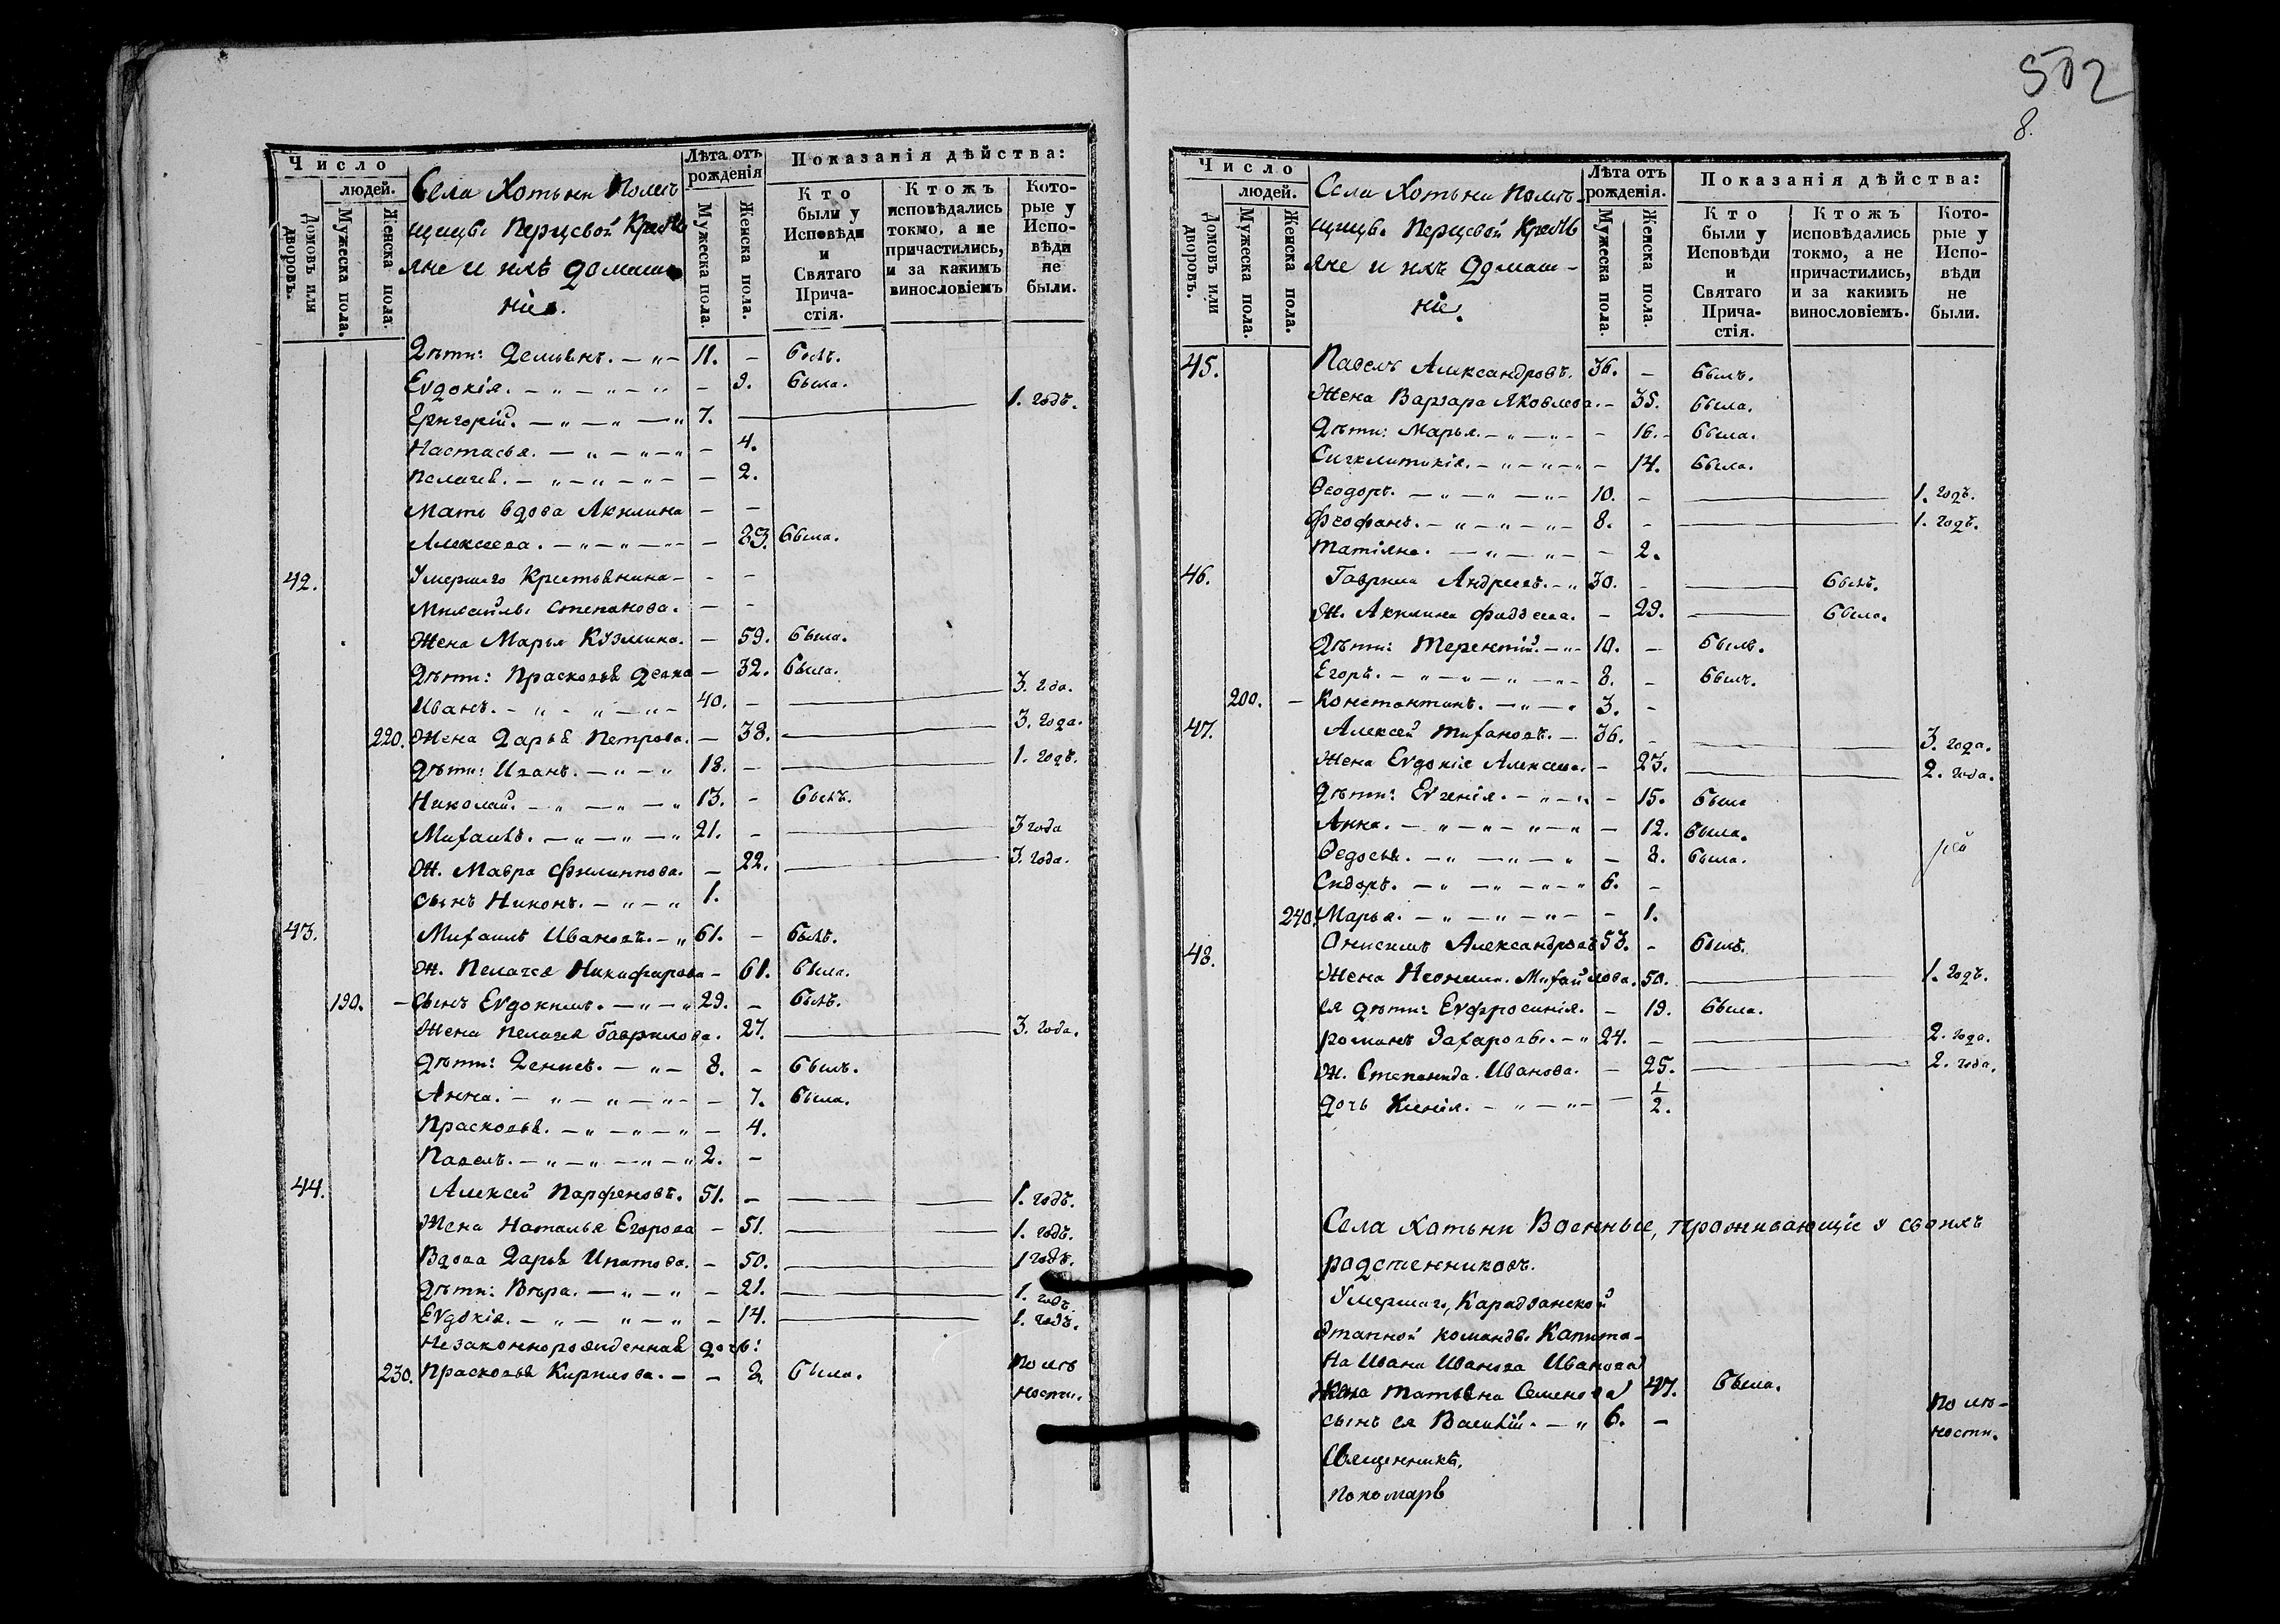 502
8.
Число
людей.
Домовъ или дворовъ.
Мужеска пола.
Женска пола.
Села Хотьни Помѣ
щицы Перцевой Кресть
яне и ихъ домаш
ніе.
Лѣта отъ рожденія
Мужеска пола.
Женска пола.
Показанія дѣйства:
Кто были у Исповѣди и Святаго Прича-стія.
Ктожъ исповѣдались токмо, а не причастились, и за какимъ винословіемъ
Кото-рые у Испо-вѣди не были.
Дѣти: Демьянъ. — „ — 11. — былъ.
Еѵдокія. — „ — „ — „ — 9. была.
Григорій. — „ — „ — „ 7. — 1. годъ.
Настасья. — „ — „ — „ — 4.
Пелагея. — „ — „ — „ — — 2.
Мать вдова Акилина — —
Алексеева. — „ — „ — „ — 83. была.
42. Умершаго Крестьянина — — —
Михаилы Степанова. — —
Жена Марья Кузмина. — 59. была.
Дѣти: Прасковья девка — 32. была.
Иванъ. — „ — „ — „ — 40. — 3. года.
220. Жена Дарья Петрова. — 38. 3. года.
Дѣти: Иванъ. — „ — „ 18. — 1. годъ.
Николай. — „ — „ — „ 13. — былъ.
Михаилъ. — „ — „ — „ 21. — 3 года
Ж. Мавра Филиппова. — 22. 3. года.
сынъ Никонъ. — „ — „ 1.
43. Михаилъ Ивановъ. — „ 61. — былъ.
Ж. Пелагея Никифорова — 61. была.
190. — Сынъ Еѵдокимъ. — „ — „ 29. — былъ.
Жена Пелагея Гаврилова. 27. 3. года.
дѣти: Денисъ. — „ — 8. — былъ.
Анна. — „ — „ — „ — — 7. была.
Прасковья. — „ — „ — „ — 4.
Павелъ. — „ — „ — „ — „ 2. —
44. Алексей Парфеновъ. 51. — 1. годъ.
Жена Наталья Егорова — 51. 1. годъ.
Вдова Дарья Ипатова. — 50. 1 годъ.
дѣти: Вѣра. — „ — „ — 21. 1. годъ.
Еѵдокія. — „ — „ — „ — 14. 1. годъ.
Незаконнорожденная дочь:
230. Прасковья Кирилова. — — 2. была. По мѣ
ности.
Число
людей.
Домовъ или дворовъ.
Мужеска пола.
Женска пола.
Села Хотьни Помѣ-
щицы Перцевой Кресть
яне и ихъ Домаш-
ніе.
Лѣта отъ рожденія.
Мужеска пола.
Женска пола.
Показанія дѣйства:
Кто были у Исповѣди и Святаго Прича-стія.
Ктожъ исповѣдались токмо, а не причастились, и за какимъ винословіемъ.
Кото-рые у Испо-вѣди не были.
45. Павелъ Александровъ. 36. — былъ.
Жена Варвара Яковлева. — 35. была.
Дѣти: Марья. — „ — „ — — 16. — была.
Сигклитикія. — „ — „ — „ — 14. была.
Ѳеодоръ. — „ — „ — „ — 10. — 1. годъ.
Феофанъ. — „ — „ — „ — 8. — 1. годъ.
Татіяна. — „ — „ — — 2.
46. Гаврила Андреевъ. — „ 30. — былъ.
Ж. Акилина Фаддеева. — 29. была.
Дѣти: Терентій. — „ — 10. — былъ.
Егоръ. — „ — „ — „ — „ — 8. — былъ.
200. — Константинъ. — „ — „ 3. —
47. Алексей Тихановъ. — 36. — 3. года.
Жена Еѵдокія Алексеева. — 23. 2. года.
Дѣти: Еѵгенія. — „ — „ — 15. была
Анна. — „ — „ — „ — „ — 12. была.
Ѳедосья. — „ — „ — „ — 8. была.
Сидоръ. — „ — „ — „ — „ 6. —
240. Марья. — „ — „ — „ — — 1.
48. Онисимъ Александровъ 53. — былъ.
Жена Неонила Михайлова. 50. 1. годъ.
ея дѣти: Еѵфросинія. — 19. была.
Романъ Захаровъ. — „ 24. — 2. года.
Ж. Степанида Иванова. — 25. 2. года.
дочь Ксенія. — „ — „ — — 1/2.
Села Хотьни Военные, проживающіе у своихъ
родственниковъ.
Умершаго,
Этапной команды Капита-
на Ивана Иванова Иванова
Жена Татьяна Семенова 47. была.
сынъ ея Василій. — „ 6. — По мѣ-
ности.
Священникъ.
Пономарь